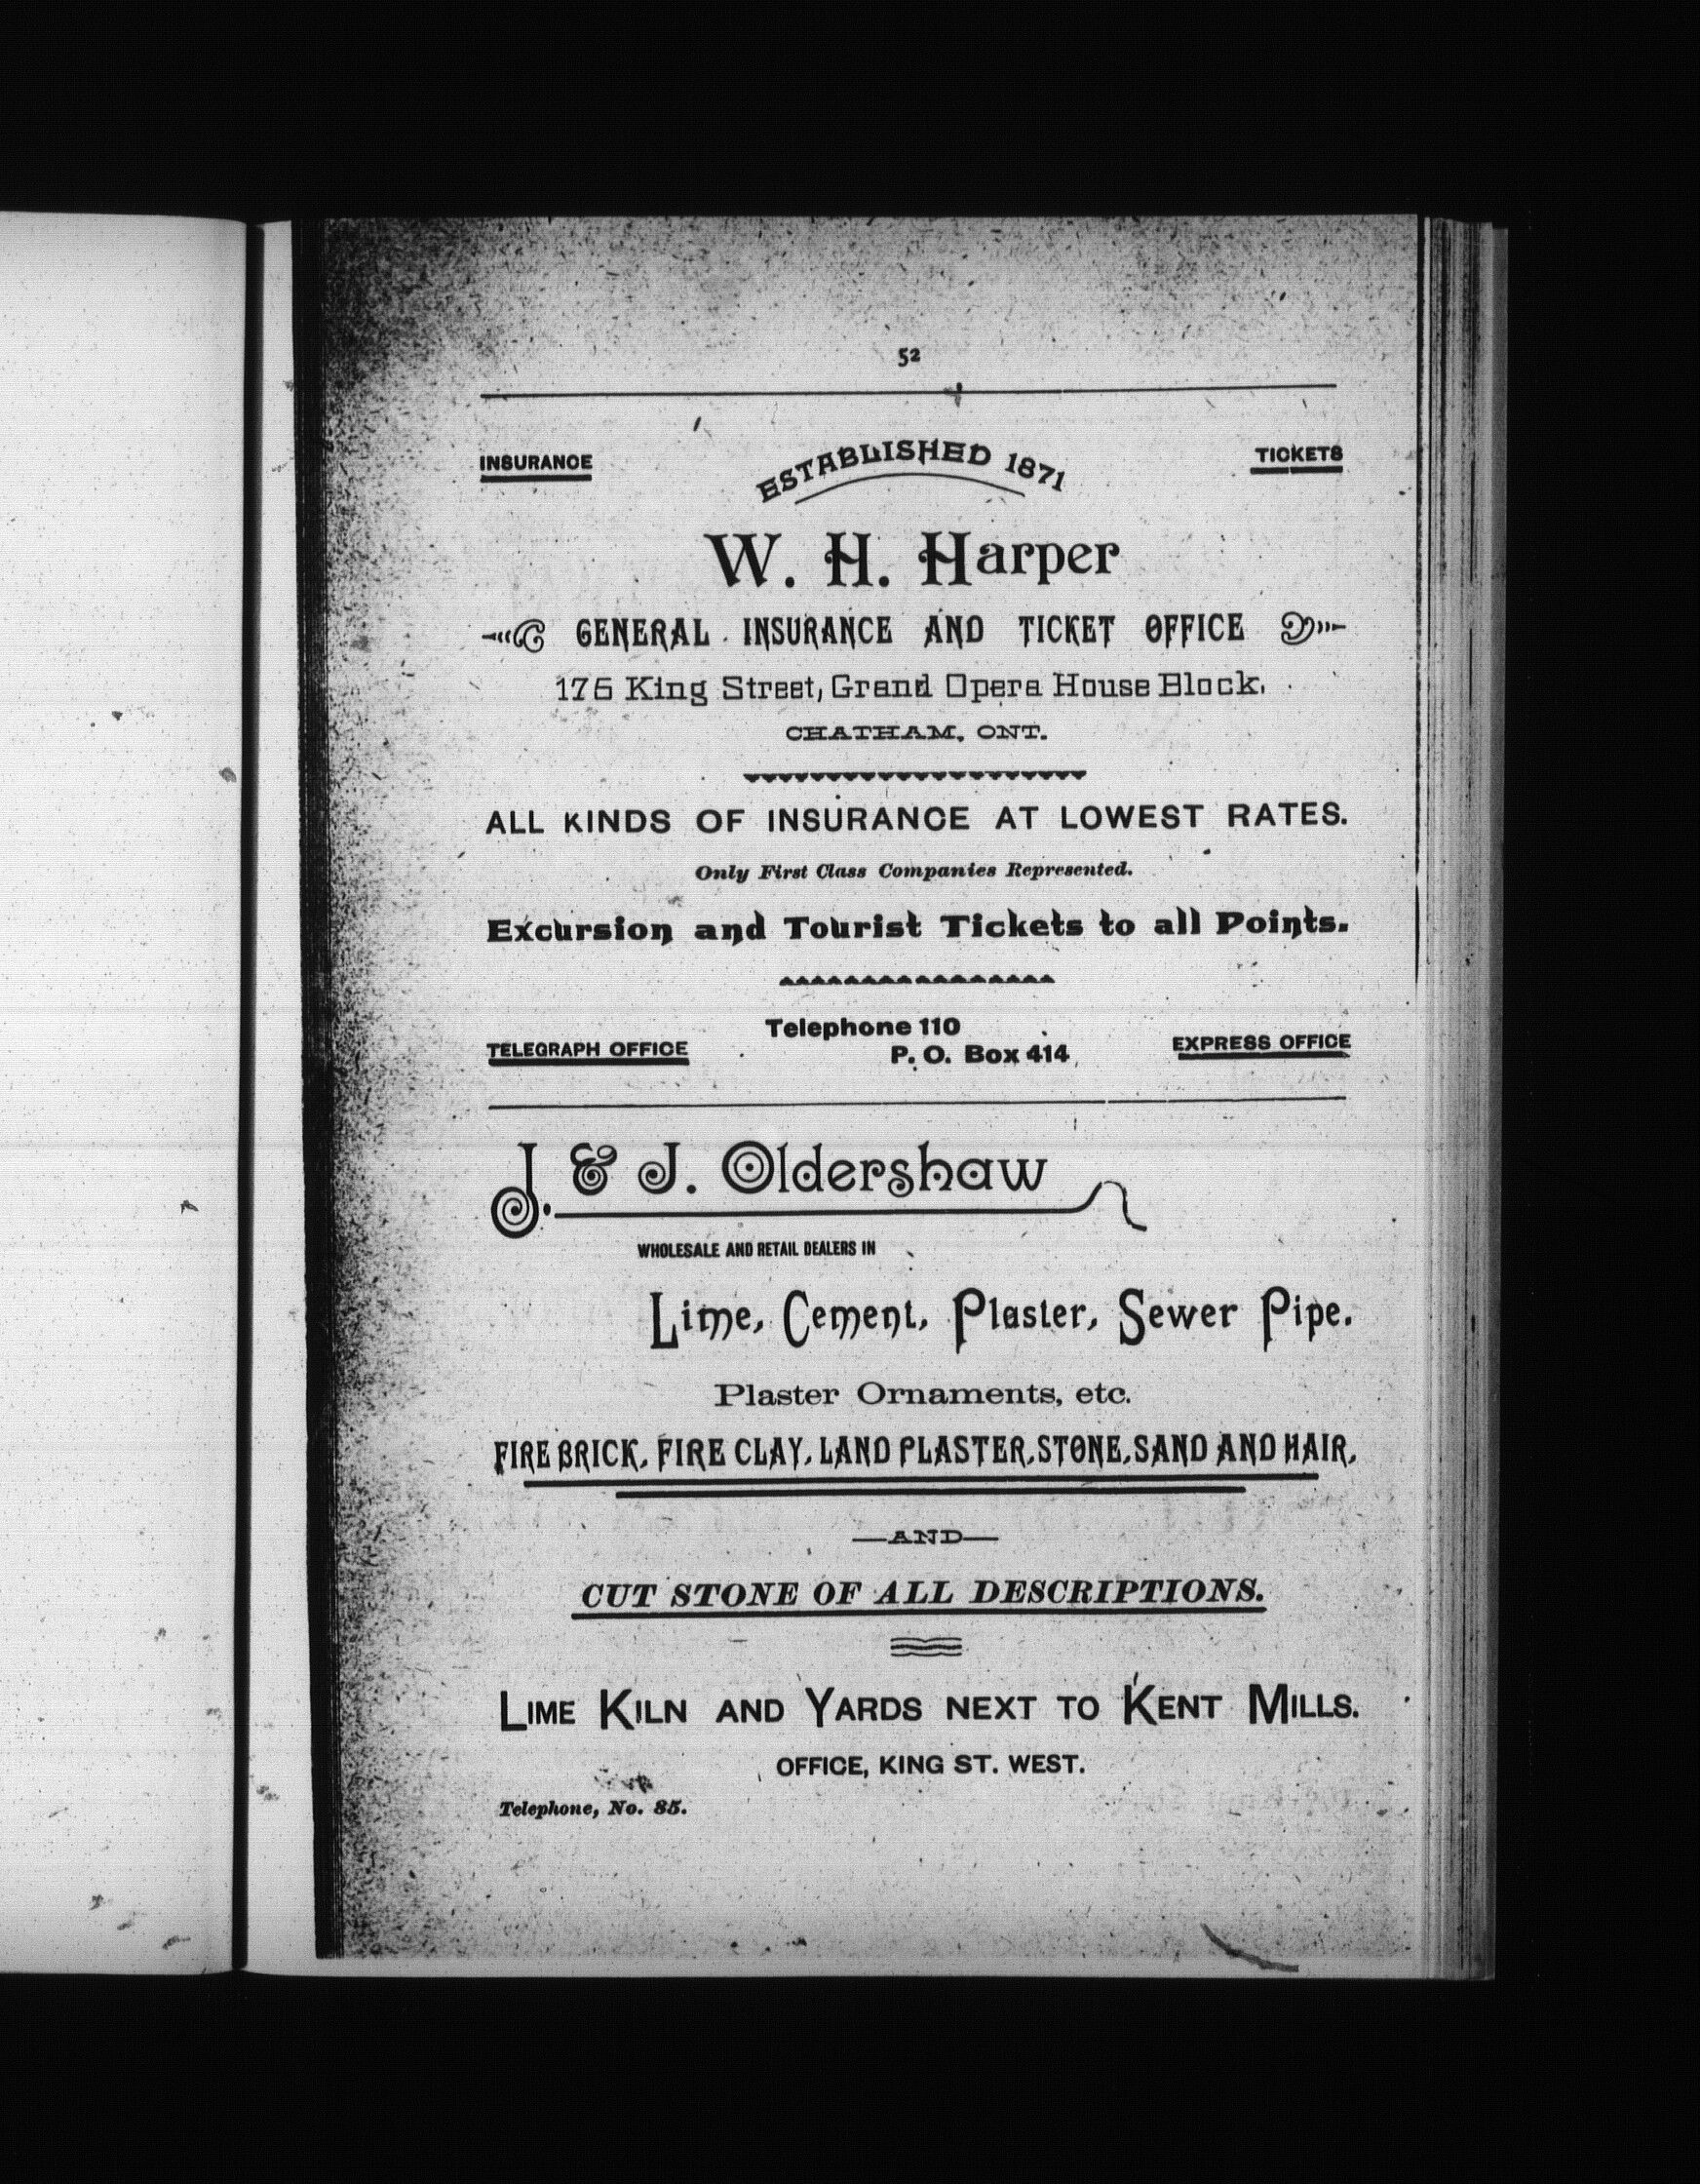 52
INSURANCE
ESTABLISHED 1871
TICKETS
W. H. Harper
GENERAL INSURANCE AND TICKET OFFICE
175 King Street, Grand Opera House Block,
CHATHAM, ONT.
ALL KINDS OF INSURANCE AT LOWEST RATES.
Only First Class Companies Represented.
Excursion and Tourist Tickets to all Points.
Telephone 110
TELEGRAPH OFFICE
P. O. Box 414
EXPRESS OFFICE
J. & J. Oldershaw
WHOLESALE AND RETAIL DEALERS IN
Lime, Cement, Plaster, Sewer Pipe.
Plaster Ornaments, etc.
FIRE BRICK, FIRE CLAY, LAND PLASTER, STONE, SAND AND HAIR,
—AND—
CUT STONE OF ALL DESCRIPTIONS.
LIME KILN AND YARDS NEXT TO KENT MILLS.
OFFICE, KING ST. WEST.
Telephone, No. 85.